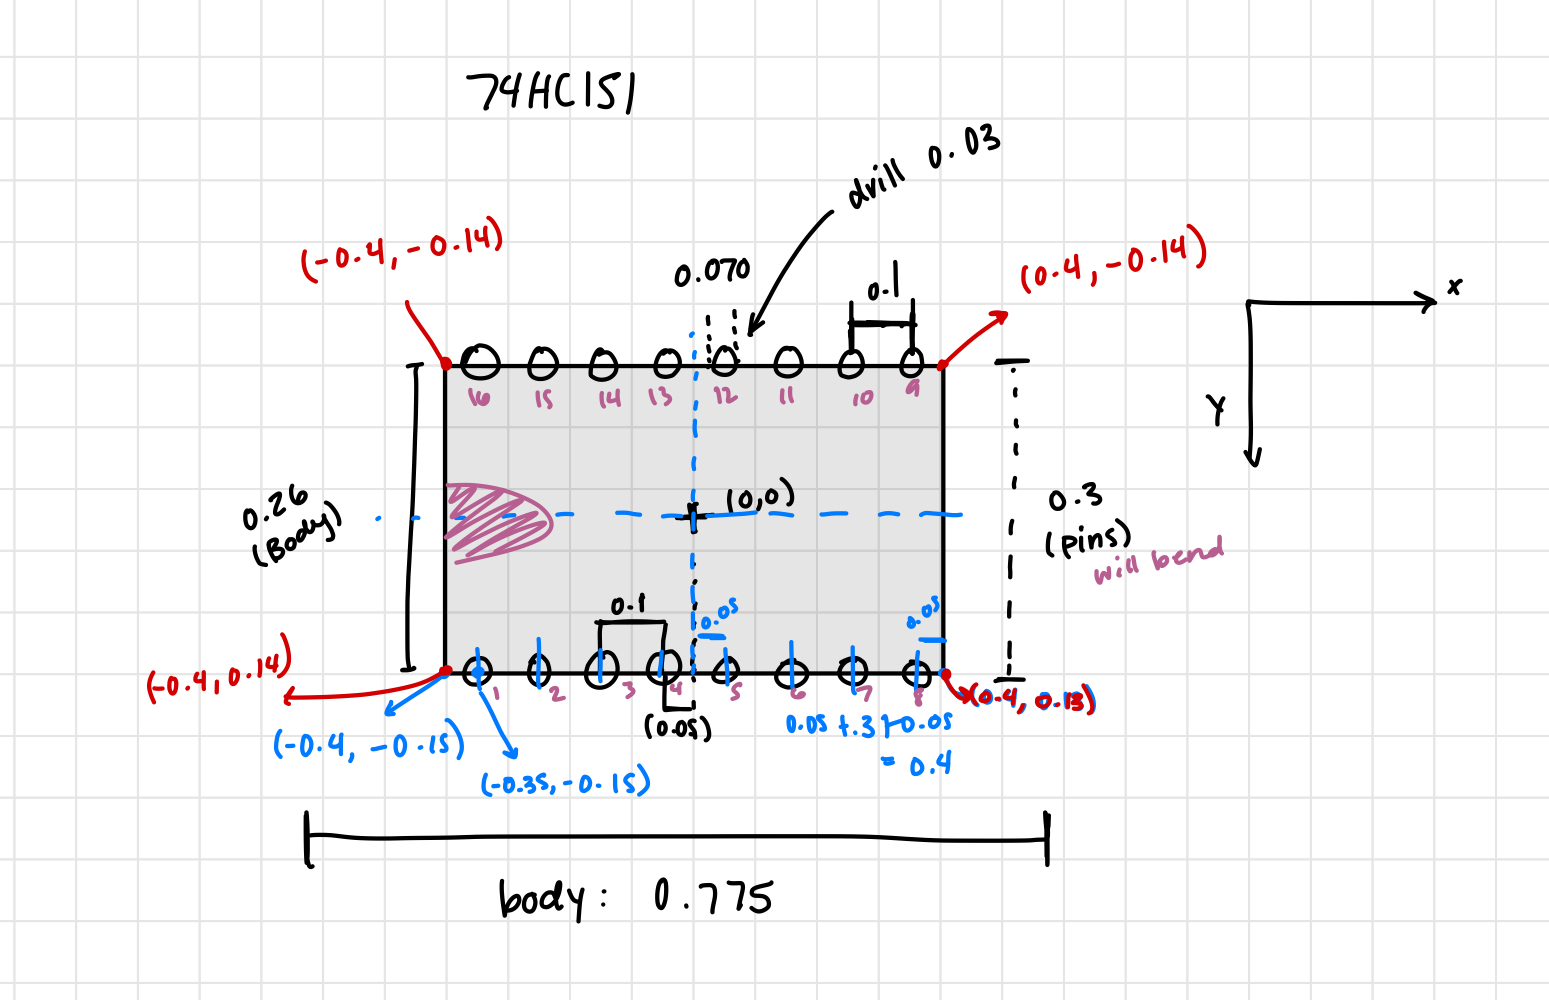 74HC151
drill 0.03
(-0.4, -0.14)
0.070
0.1
(0.4, -0.14)
x
16 15 14 13 12 11 10 9
Y
0.26
(Body)
(0,0)
0.3
(pins)
will bend
0.1
0.05
0.05
(-0.4, 0.14)
1 2 3 4 5 6 7 8
(0.05)
0.05 +.3 + 0.05
= 0.4
(-0.4, -0.15)
(-0.35, -0.15)
body: 0.775